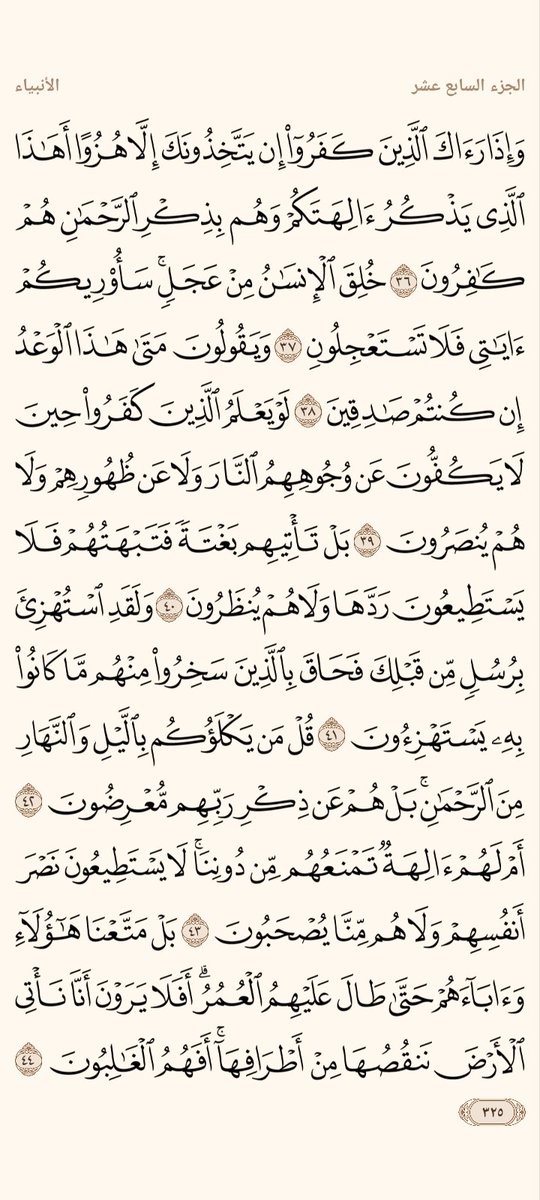 الجزء السابع عشر
الأنبياء
وَإِذَا رَءَاكَ ٱلَّذِينَ كَفَرُوٓاْ إِن يَتَّخِذُونَكَ إِلَّا هُزُوًا أَهَٰذَا
ٱلَّذِى يَذۡكُرُ ءَالِهَتَكُمۡ وَهُم بِذِكۡرِ ٱلرَّحۡمَٰنِ هُمۡ
كَٰفِرُونَ ٣٦ خُلِقَ ٱلۡإِنسَٰنُ مِنۡ عَجَلٖۚ سَأُوْرِيكُمۡ
ءَايَٰتِى فَلَا تَسۡتَعۡجِلُونِ ٣٧ وَيَقُولُونَ مَتَىٰ هَٰذَا ٱلۡوَعۡدُ
إِن كُنتُمۡ صَٰدِقِينَ ٣٨ لَوۡ يَعۡلَمُ ٱلَّذِينَ كَفَرُواْ حِينَ
لَا يَكُفُّونَ عَن وُجُوهِهِمُ ٱلنَّارَ وَلَا عَن ظُهُورِهِمۡ وَلَا
هُمۡ يُنصَرُونَ ٣٩ بَلۡ تَأۡتِيهِم بَغۡتَةٗ فَتَبۡهَتُهُمۡ فَلَا
يَسۡتَطِيعُونَ رَدَّهَا وَلَا هُمۡ يُنظَرُونَ ٤٠ وَلَقَدِ ٱسۡتُهۡزِئَ
بِرُسُلٖ مِّن قَبۡلِكَ فَحَاقَ بِٱلَّذِينَ سَخِرُواْ مِنۡهُم مَّا كَانُواْ
بِهِۦ يَسۡتَهۡزِءُونَ ٤١ قُلۡ مَن يَكۡلَؤُكُم بِٱلَّيۡلِ وَٱلنَّهَارِ
مِنَ ٱلرَّحۡمَٰنِۚ بَلۡ هُمۡ عَن ذِكۡرِ رَبِّهِم مُّعۡرِضُونَ ٤٢
أَمۡ لَهُمۡ ءَالِهَةٞ تَمۡنَعُهُم مِّن دُونِنَاۚ لَا يَسۡتَطِيعُونَ نَصۡرَ
أَنفُسِهِمۡ وَلَا هُم مِّنَّا يُصۡحَبُونَ ٤٣ بَلۡ مَتَّعۡنَا هَٰٓؤُلَآءِ
وَءَابَآءَهُمۡ حَتَّىٰ طَالَ عَلَيۡهِمُ ٱلۡعُمُرُۗ أَفَلَا يَرَوۡنَ أَنَّا نَأۡتِى
ٱلۡأَرۡضَ نَنقُصُهَا مِنۡ أَطۡرَافِهَآۚ أَفَهُمُ ٱلۡغَٰلِبُونَ ٤٤
٣٢٥